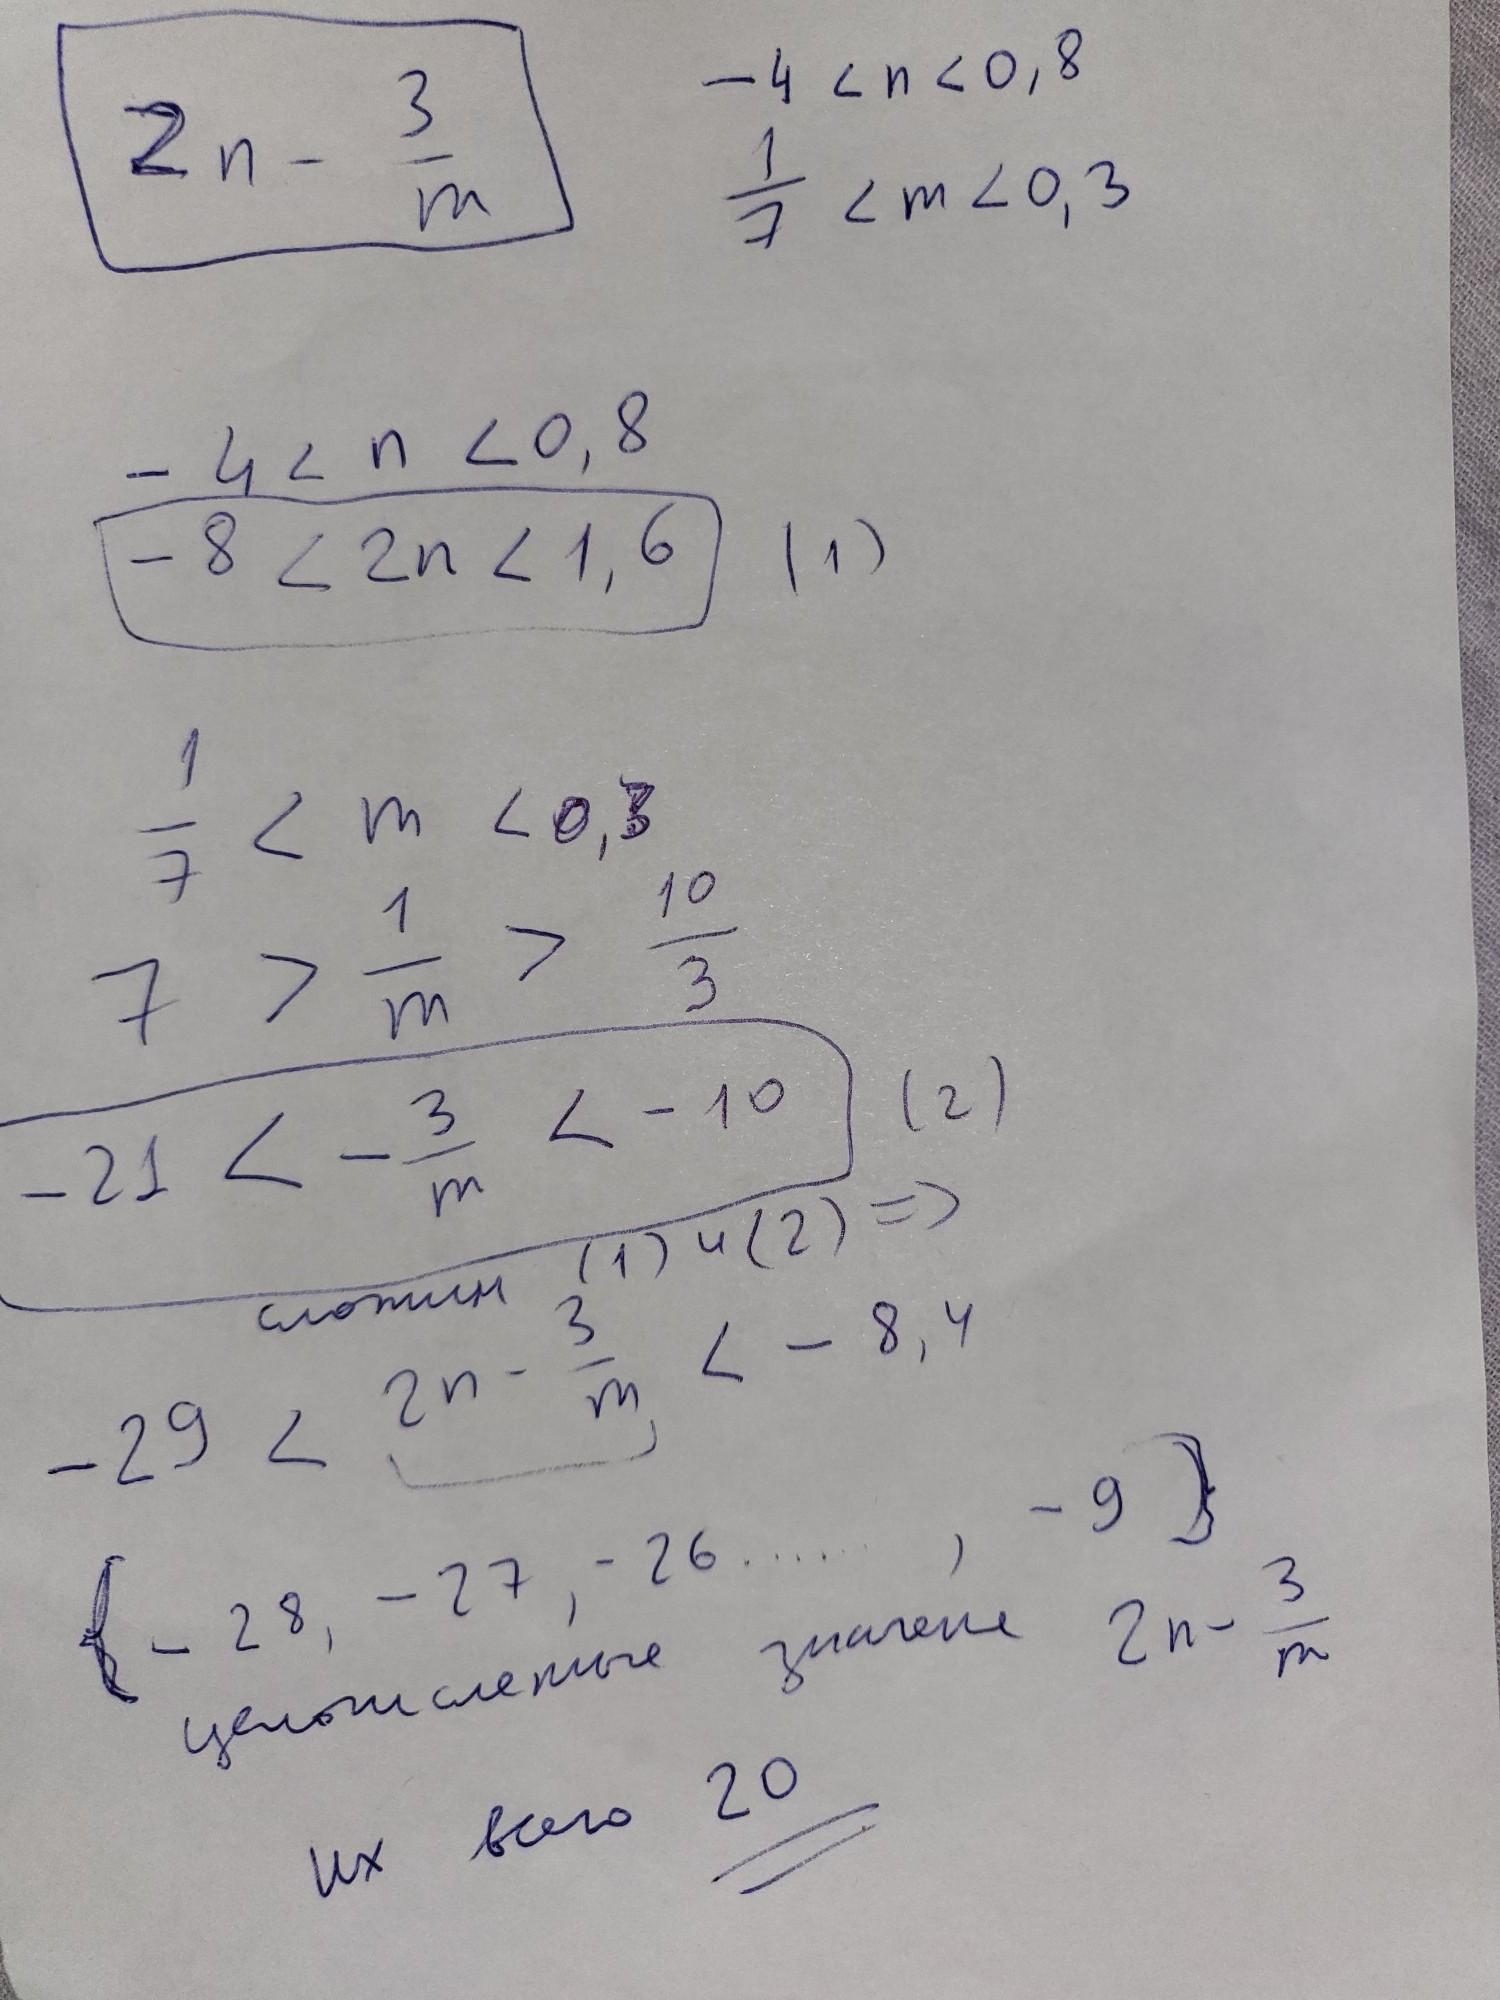 2n - 3/m
-4 < n < 0,8
1/7 < m < 0,3
-4 < n < 0,8
-8 < 2n < 1,6 (1)
1/7 < m < 0,3
7 > 1/m > 10/3
-21 < -3/m < -10 (2)
сложим (1) и (2) =>
-29 < 2n - 3/m < -8,4
{-28, -27, -26......, -9}
целочисленные значение 2n - 3/m
их всего 20